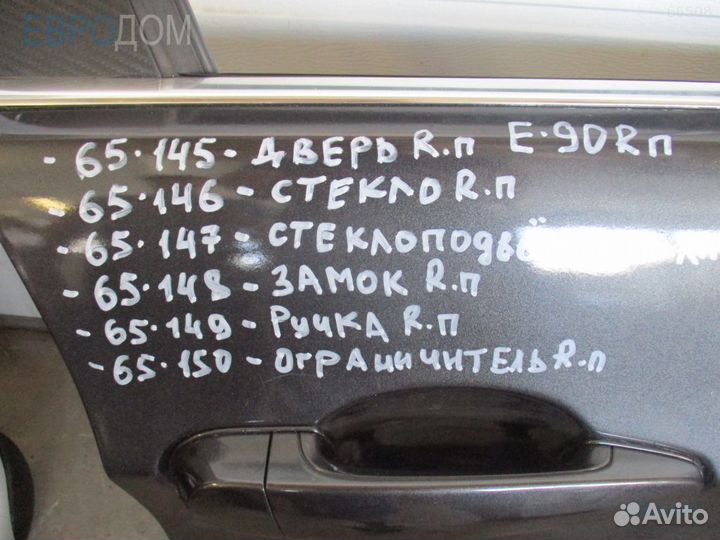 66508
ЕВРОДОМ
- 65.145 - ДВЕРЬ R.п E-90 R п
- 65.146 - СТЕКЛО R.п
- 65.147 - 
- 65.148 - ЗАМОК R.п
- 65.149 - РУЧКА R.п
- 65.150 - ОГРАНИЧИТЕЛЬ R.п
Avito